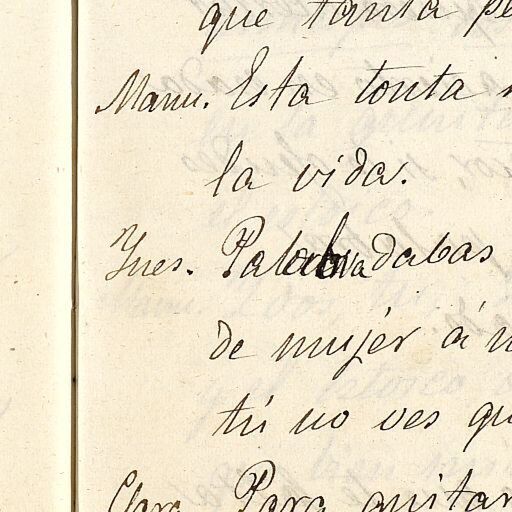 que tanta pe
Manu. Esta tonta
la vida.
Ynes. Palabra dabas
de mujér á
tú no ves qu
Clara Para quitar